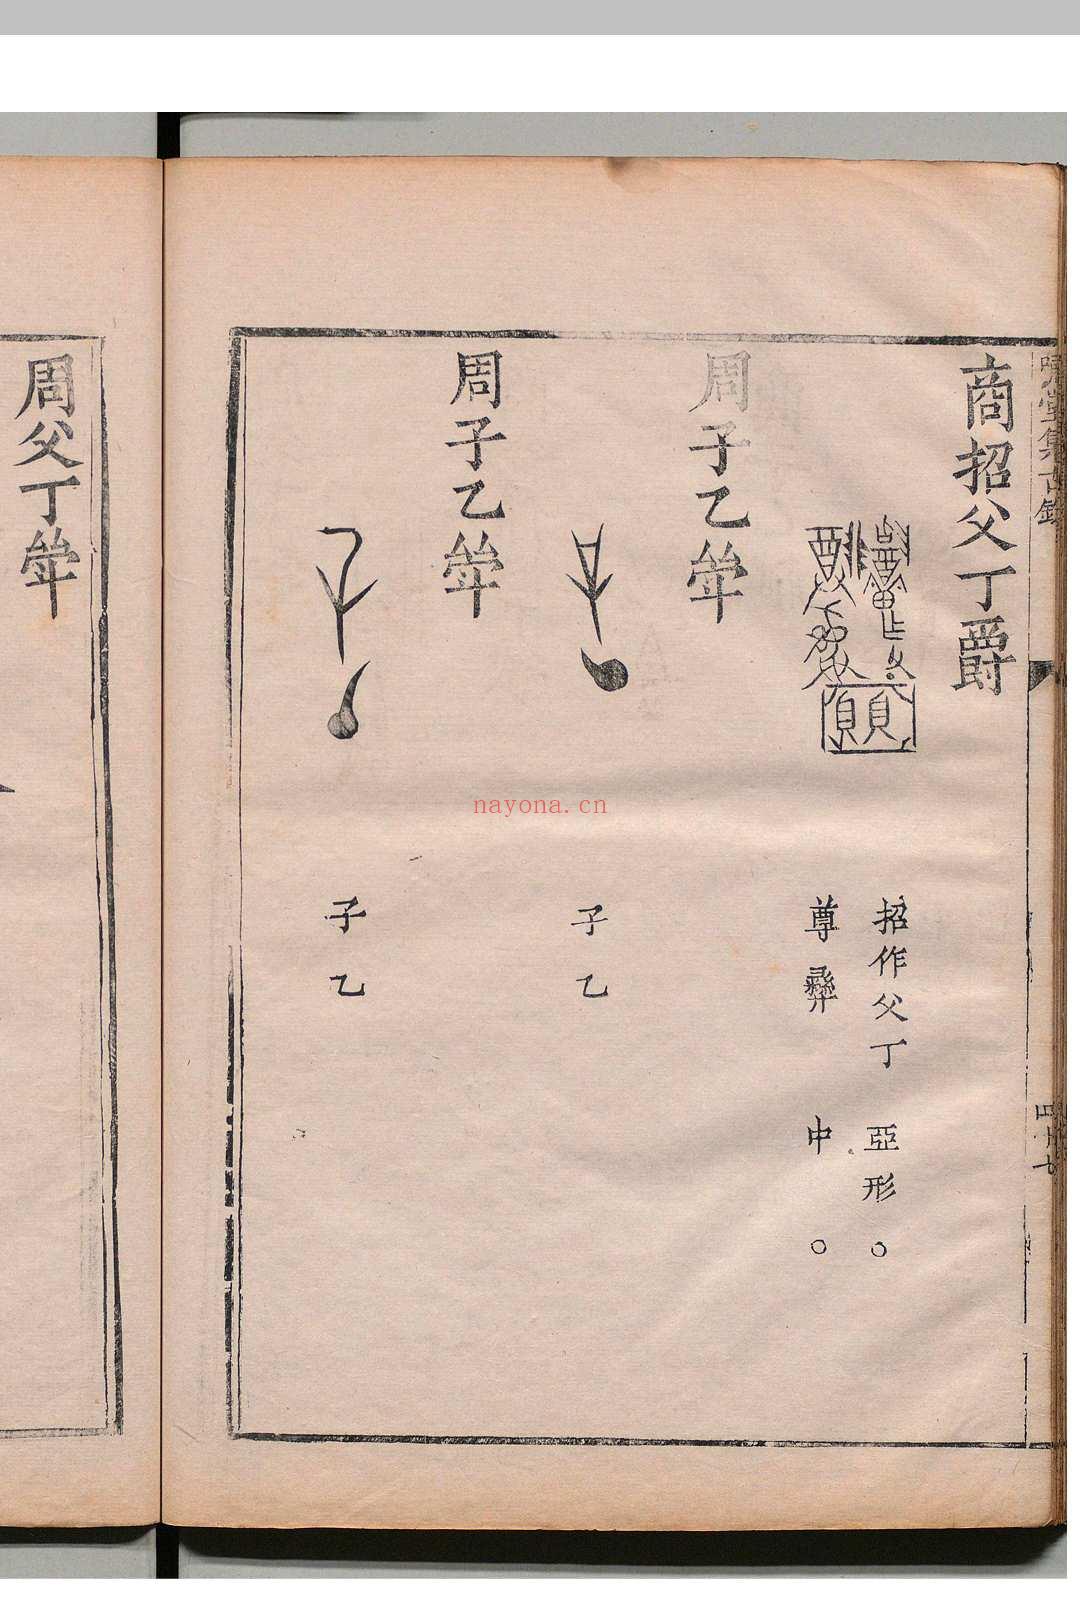 嘯堂集古錄
四十七
商招父丁爵
招作父丁 亞形○
尊彝 中○
周子乙斝
子乙
周子乙斝
子乙
周父丁斝
nayona.cn